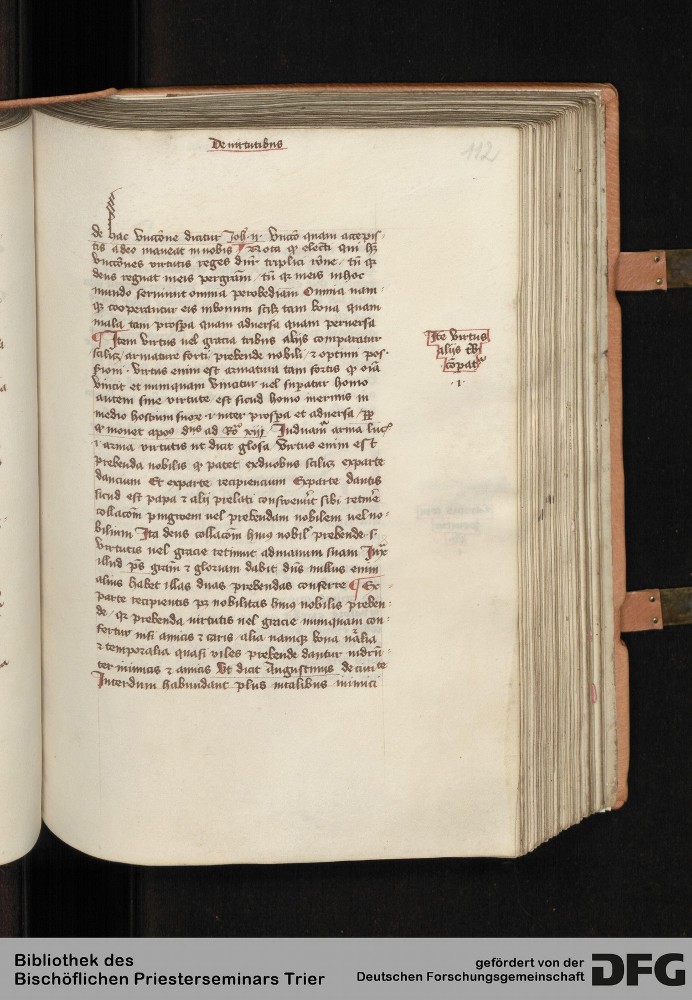 De virtutibus
112
de hac unctõne dicitur Joh. ii. Unctõ quam accepis-
tis a deo maneat in nobis Nota ꝙ electi qui hñt
unctiones virtutis reges dñr triplici rõne / tũ ꝙ
deus regnat in eis per grãm / tũ ꝙ in eis in hoc
mundo serviunt omnia per obediam Omnia nam-
ꝙ cooperantur eis in bonum scilz tam bona quam
mala tam prospa quam adversa quam perversa
¶ Item virtus vel gracia tribus alijs comparatur
scilicz armature forti prebende nobili / et optimi pos-
Virtus enim est armatura tam fortis ꝙ oĩa
vincit et numquam vincitur vel supatur homo
autem sine virtute est sicud homo inermis in
medio hostium suorũ et inter prospa et adversa /
ꝙ monet apos ad Ro xiii Induamur arma lucꝭ
i arma virtutis ut dicit glosa Virtus enim est
prebenda nobilis ꝙ patet ex duobus scilicz ex parte
dancium Et ex parte recipiencium Ex parte dantis
sicud est papa et alij prelati consweverũt sibi retinere
collacõem pingwem vel prebendam nobilem vel no-
bilium Ita deus collacõem huius nobilꝭ prebende s
virtutis vel gracie retinuit ad manum suam Juxta
illud ps grãm et gloriam dabit dñs nullus enim
alius habet illas duas prebendas conferre ¶ Ex
parte recipientis pꝫ nobilitas huius nobilis preben-
de / qꝛ prebenda virtutis vel gracie numquam con-
fertur nisi amicis et caris alia namqꝫ bona nãlia
et temporalia quasi viles prebende dantur indrñ-
ter inimicis et amicis Ut dicit Augustinus de civite
Interdum habundant plus in talibus inimici
Itẽ virtus
alijs tbꝫ
cõpatꝛ
· i ·
Bibliothek des
Bischöflichen Priesterseminars Trier
gefördert von der
Deutschen Forschungsgemeinschaft
DFG